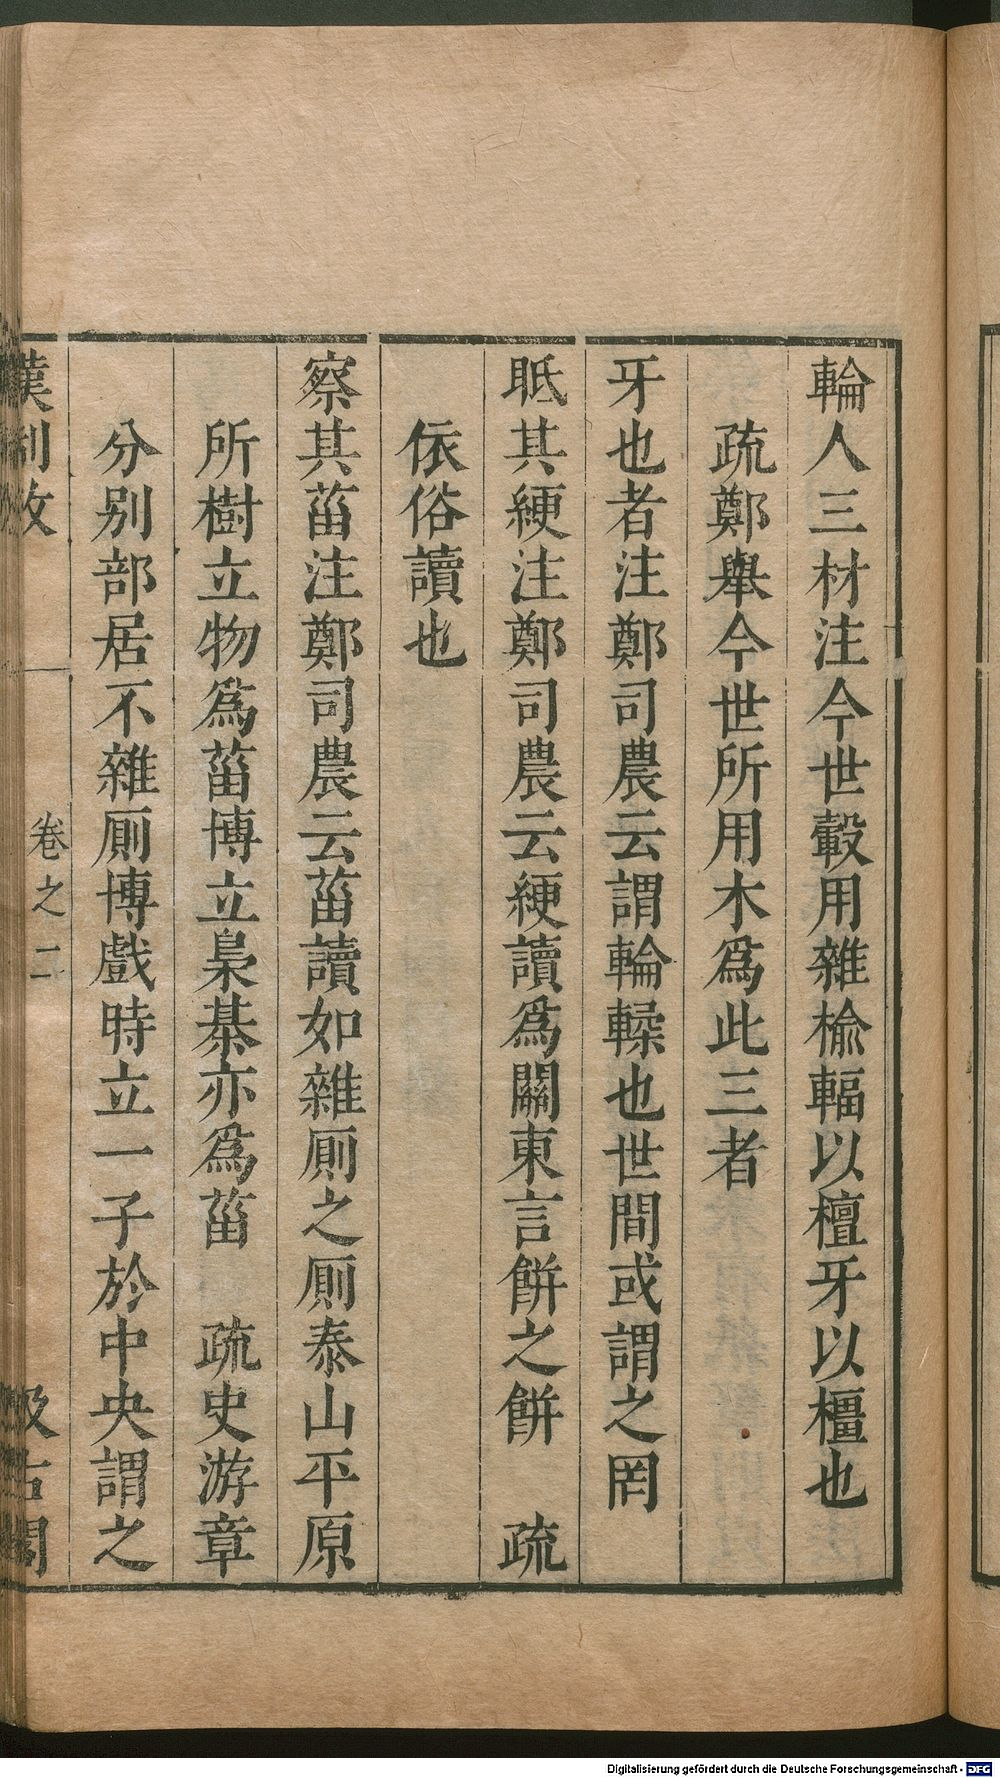 輪人三材注今世轂用雜榆輻以檀牙以橿也
疏鄭舉今世所用木爲此三者
牙也者注鄭司農云謂輪輮也世間或謂之罔
眡其綆注鄭司農云綆讀爲關東言餅之餅　疏
依俗讀也
察其菑注鄭司農云菑讀如雜厠之厠泰山平原
所樹立物爲菑博立梟棊亦爲菑　疏史游章
分别部居不雜厠博戲時立一子於中央謂之
漢制攷　卷之二　汲古閣
Digitalisierung gefördert durch die Deutsche Forschungsgemeinschaft - DFG